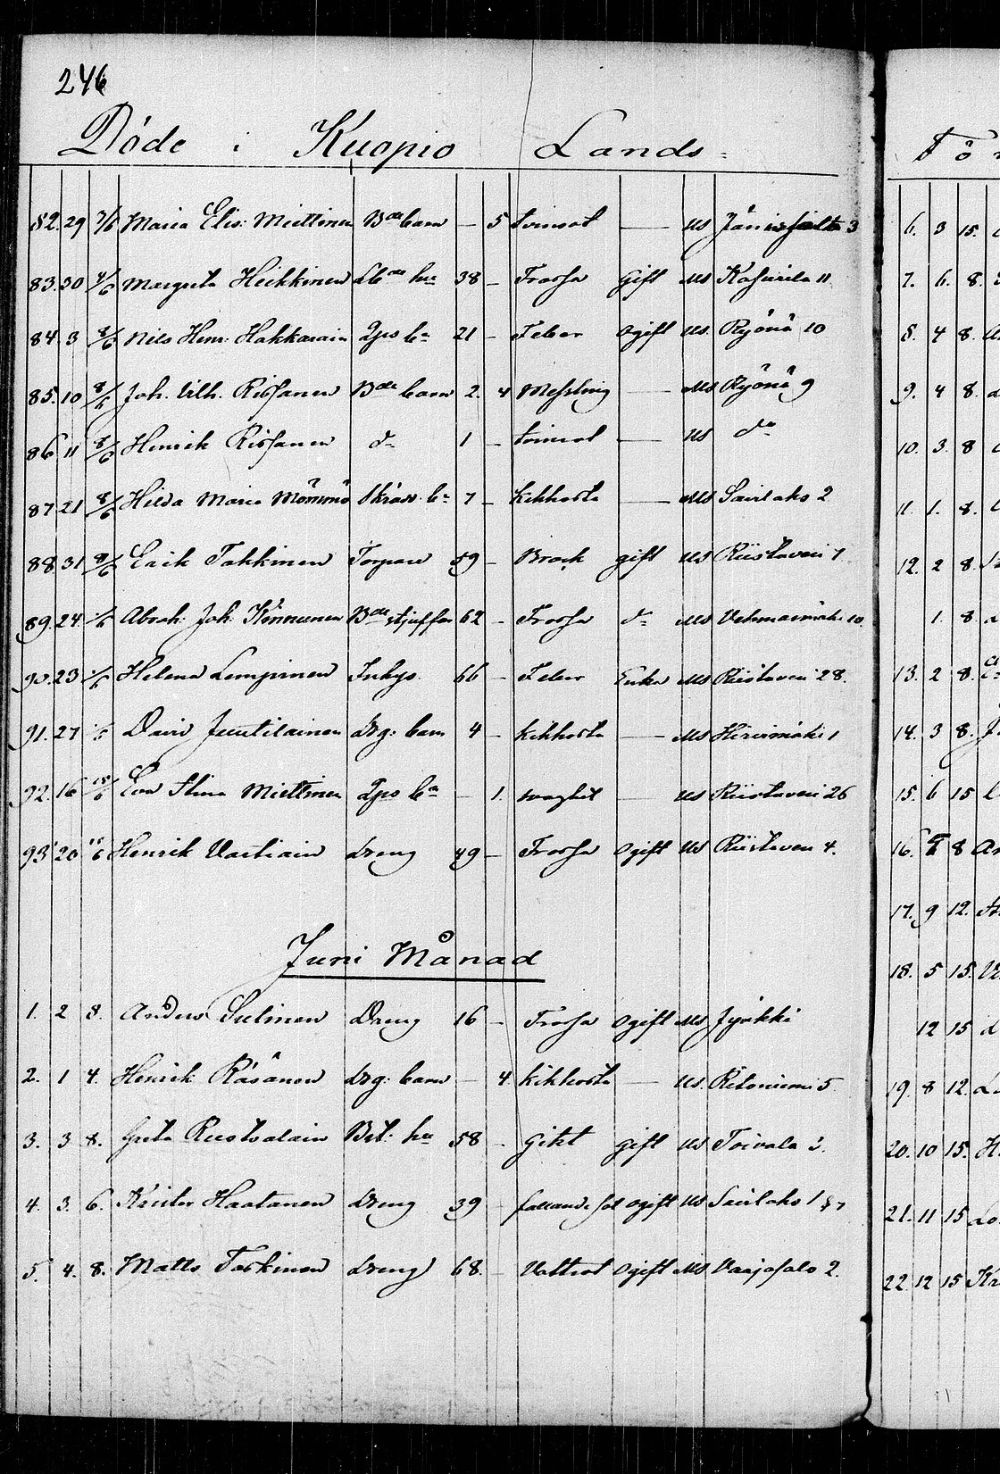 246
Döde i Kuopio Lands
82. 29 7/6 Maria Elis: Miettinen Bde barn — 5 tvinsot — MS Jänissalo 3
83. 30 4/6 Margreta Heikkinen hu 38 — Frossa Gift MS Kasurila 11
84. 3 8/6 Nils Henr: Hakkarain 21 — Feber ogift MS Ryönä 10
85. 10 8/6 Joh. Vilh. Rissanen Bde barn 2. 4 Messling — MS Ryönä 9
86 11 8/6 Henrik Rissanen do 1 — tvinsot — MS do
87 21 8/6 Hilda Maria Mömmö 7 — Kikhosta — MS Savilaks 2
88 31 8/6 Erik Takkinen Torpare 59 — Brock gift MS Riistaveri 1
89. 24. Abrah: Joh: Könnunen Bde styffar 62 — Frossa do MS Vehmasmäki 10
90. 23 Helena Lempinen Inhys. 66 — Feber Enka MS Riistaveri 28.
91. 27 David Juutilainen drg: barn 4 — Kikhosta — MS Hirvimäki 1
92. 16 Eva Stina Miettinen — 1. — MS Riistaveri 26
93 20 Henrik Vartiain dreng 49 — Frossa Ogift MS Riistaveri 4.
Juni Månad
1. 2 8. Anders Sutinen Dreng 16 — Frossa Ogift MS Jynkkä
2. 1 4. Henrik Räsänen drg: barn — 4 Kikhosta — MS. Ritoniemi 5
3. 3 8. Greta Ruotsalain hu 58 - Gikt gift MS Toivala 2.
4. 3. 6. Krister Haatanen dreng 39 - fallande sot ogift MS Savilaks 1
5. 4. 8. Matts Tarkinen dreng 68. - Vattsot Ogift MS Vaajasalo 2.
Fö
6. 3 15.
7. 6. 8.
8. 4 8.
9. 4 8.
10. 3. 8
11. 1. 8.
12. 2 8.
1. 8
13. 2 8.
14. 3 8.
15. 6 15
16. 8
17. 9 12.
18. 5 15.
12 15
19. 8 12.
20. 10 15.
21. 11 15
22. 12 15